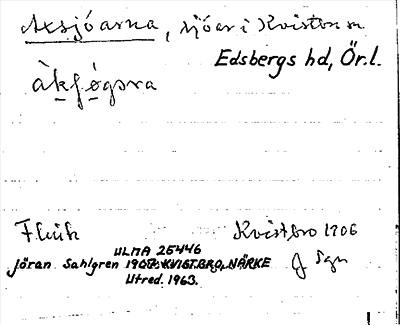 Axsjöarna, sjöar i Kvistbro sn
Edsbergs hd, Ör.l.
Kvistbro 1906
ULMA 25446
Jöran Sahlgren 1907. KVISTBRO, NÄRKE
J Sgn
Utred. 1963.